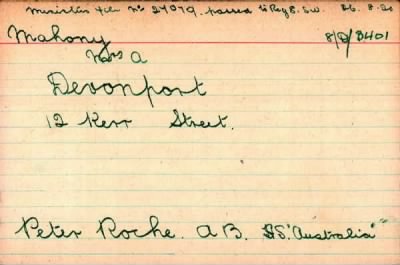 Minister's file No 24079. passed to Reg E. S.W. 26.8.20
Mahony 8/2/3401
Mrs A
Devonport
12 Kerr Street.
Peter Roche. A B. SS. "Australia"